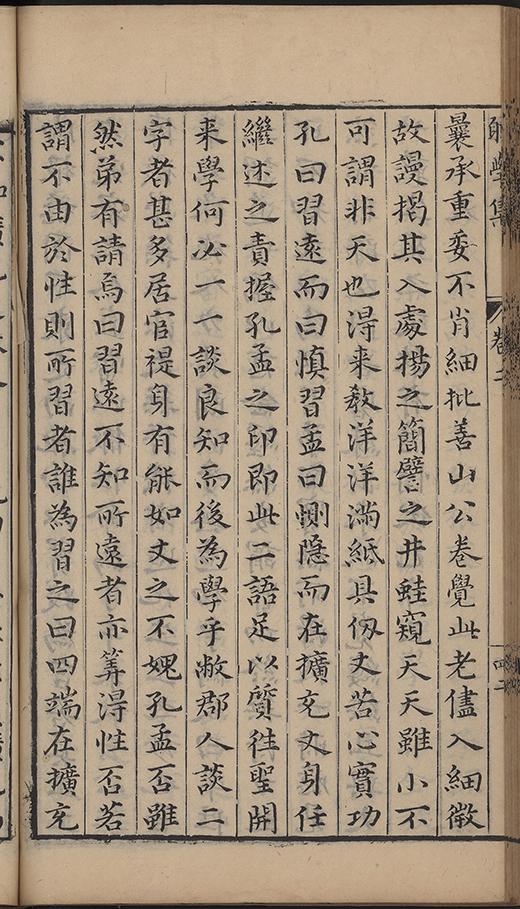 曩承重委不肖細批善山公卷覺此老儘入細微
故謾揭其入處揚之簡譬之井蛙窺天天雖小不
可謂非天也淂来教洋洋滿紙具仭丈苦心實功
孔曰習遠而曰慎習孟曰惻隠而在擴充丈身任
繼述之責握孔孟之印即此二語足以質徃聖開
来學何必一一談良知而後為學乎敝郡人談二
字者甚多居官禔身有能如丈之不媿孔孟否雖
然弟有請焉曰習遠不知所遠者亦筭淂性否若
謂不由於性則所習者誰為習之曰四端在擴充
學集
卷二
四二